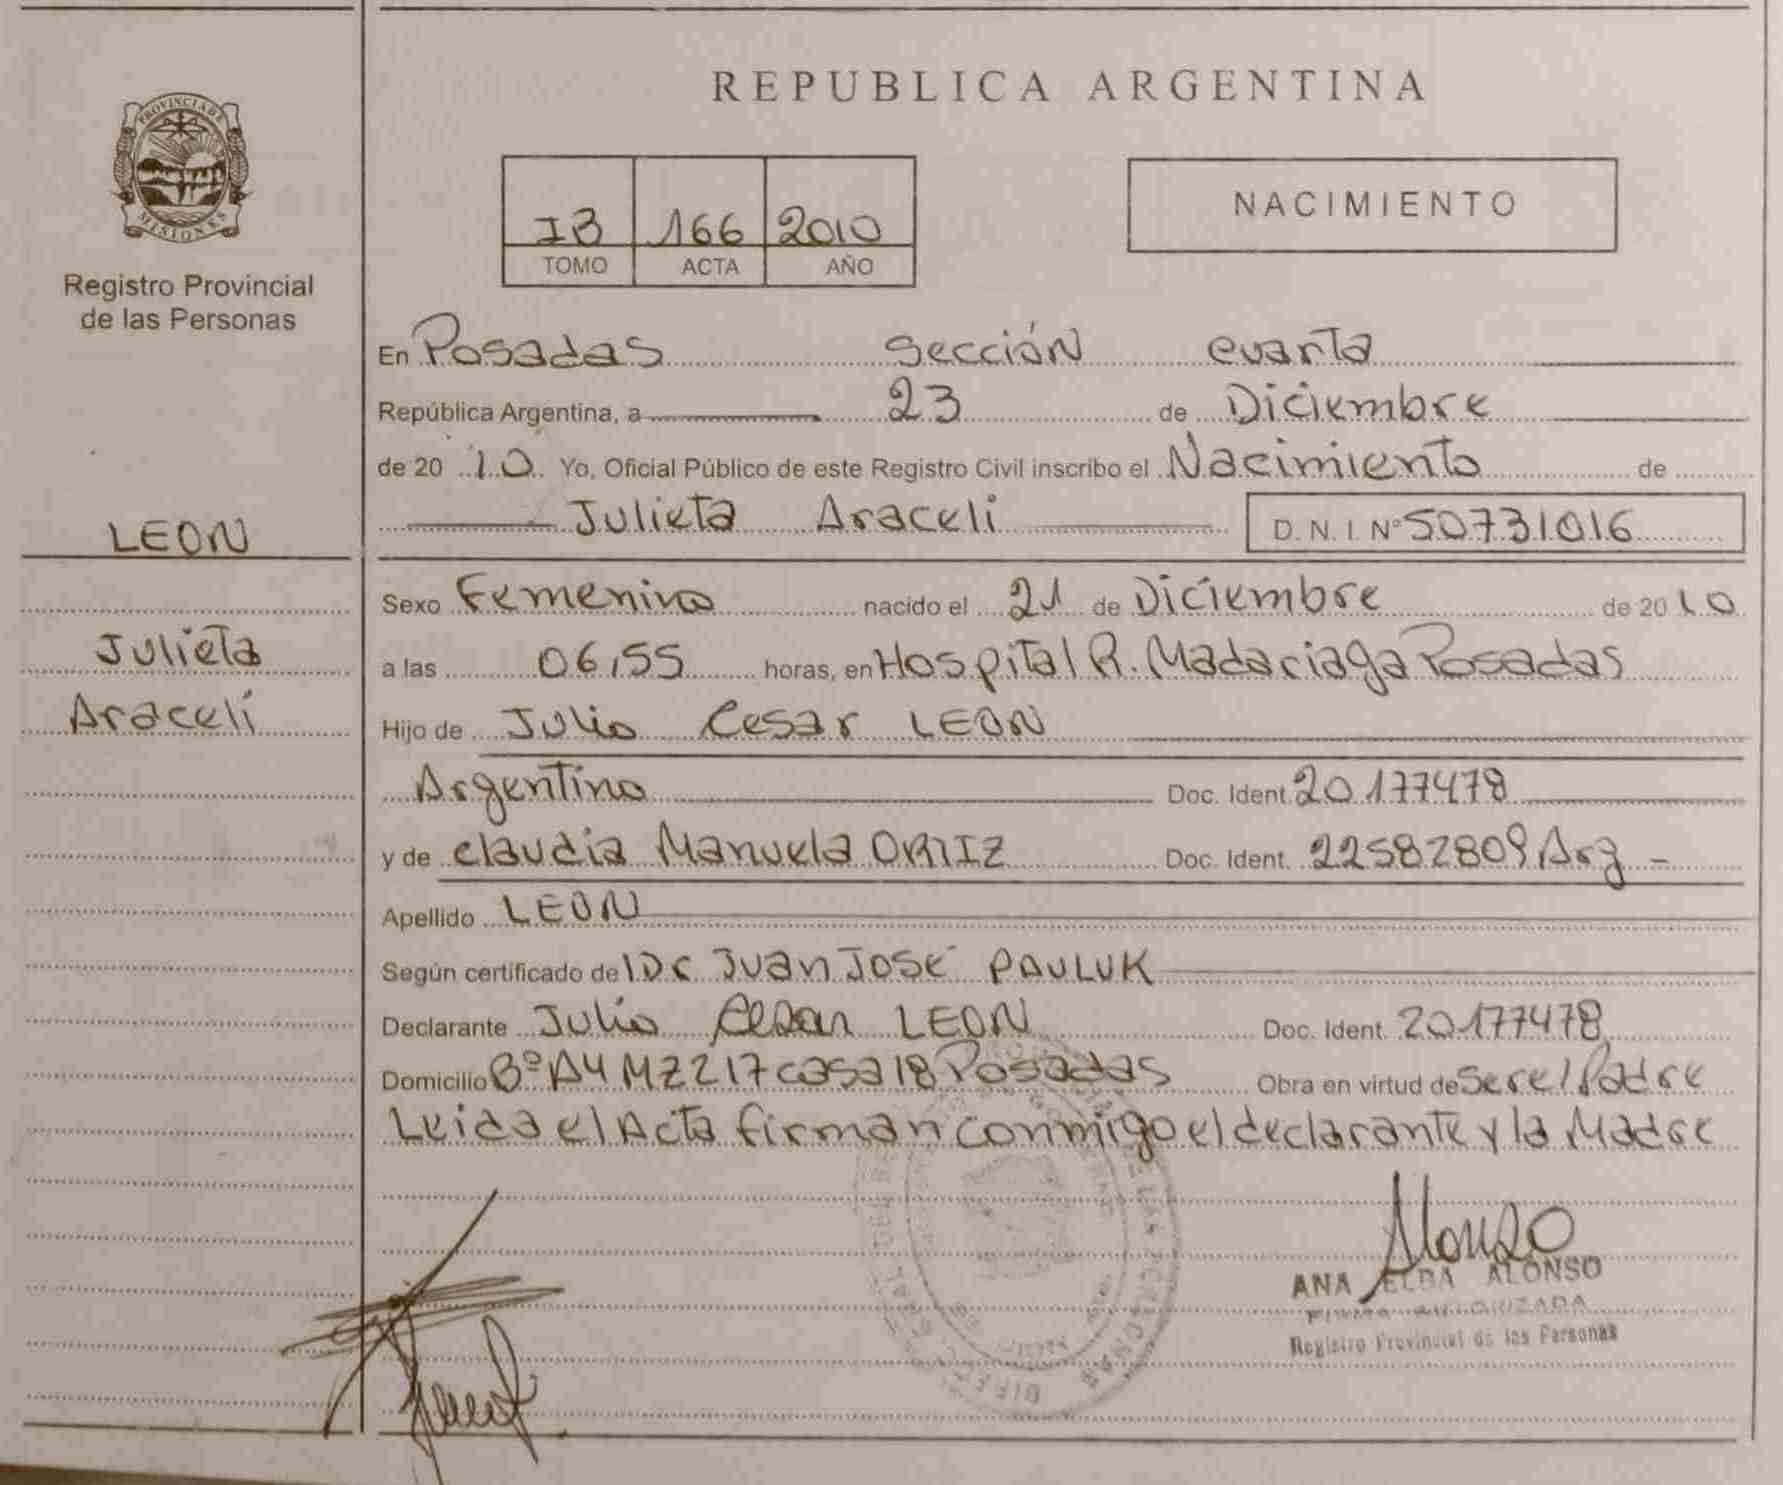 REPUBLICA ARGENTINA
PROVINCIA DE
MISIONES
Registro Provincial
de las Personas
IB 166 2010
TOMO ACTA AÑO
NACIMIENTO
En Posadas Sección cuarta
República Argentina, a 23 de Diciembre
de 20 10 Yo, Oficial Público de este Registro Civil inscribo el Nacimiento de
Julieta Araceli D.N.I. Nº 50731016
LEON
Julieta
Araceli
Sexo Femenino nacido el 21 de Diciembre de 20 10
a las 06,55 horas, en Hospital R. Madariaga Posadas
Hijo de Julio Cesar LEON
Argentino Doc. Ident. 20177478
y de Claudia Manuela ORTIZ Doc. Ident. 22582809 Arg -
Apellido LEON
Según certificado de Dr Juan José PAULUK
Declarante Julio Cesar LEON Doc. Ident. 20177478
Domicilio Bº A4 MZ 217 casa 18 Posadas Obra en virtud de Ser el Padre
Leida el Acta firman conmigo el declarante y la Madre
Alonso
ANA ELDA ALONSO
FIRMA AUTORIZADA
Registro Provincial de las Personas